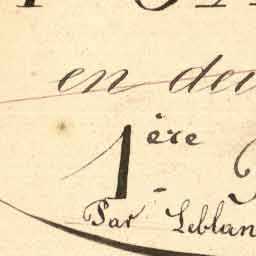 en deu
1ère
Par Leblan